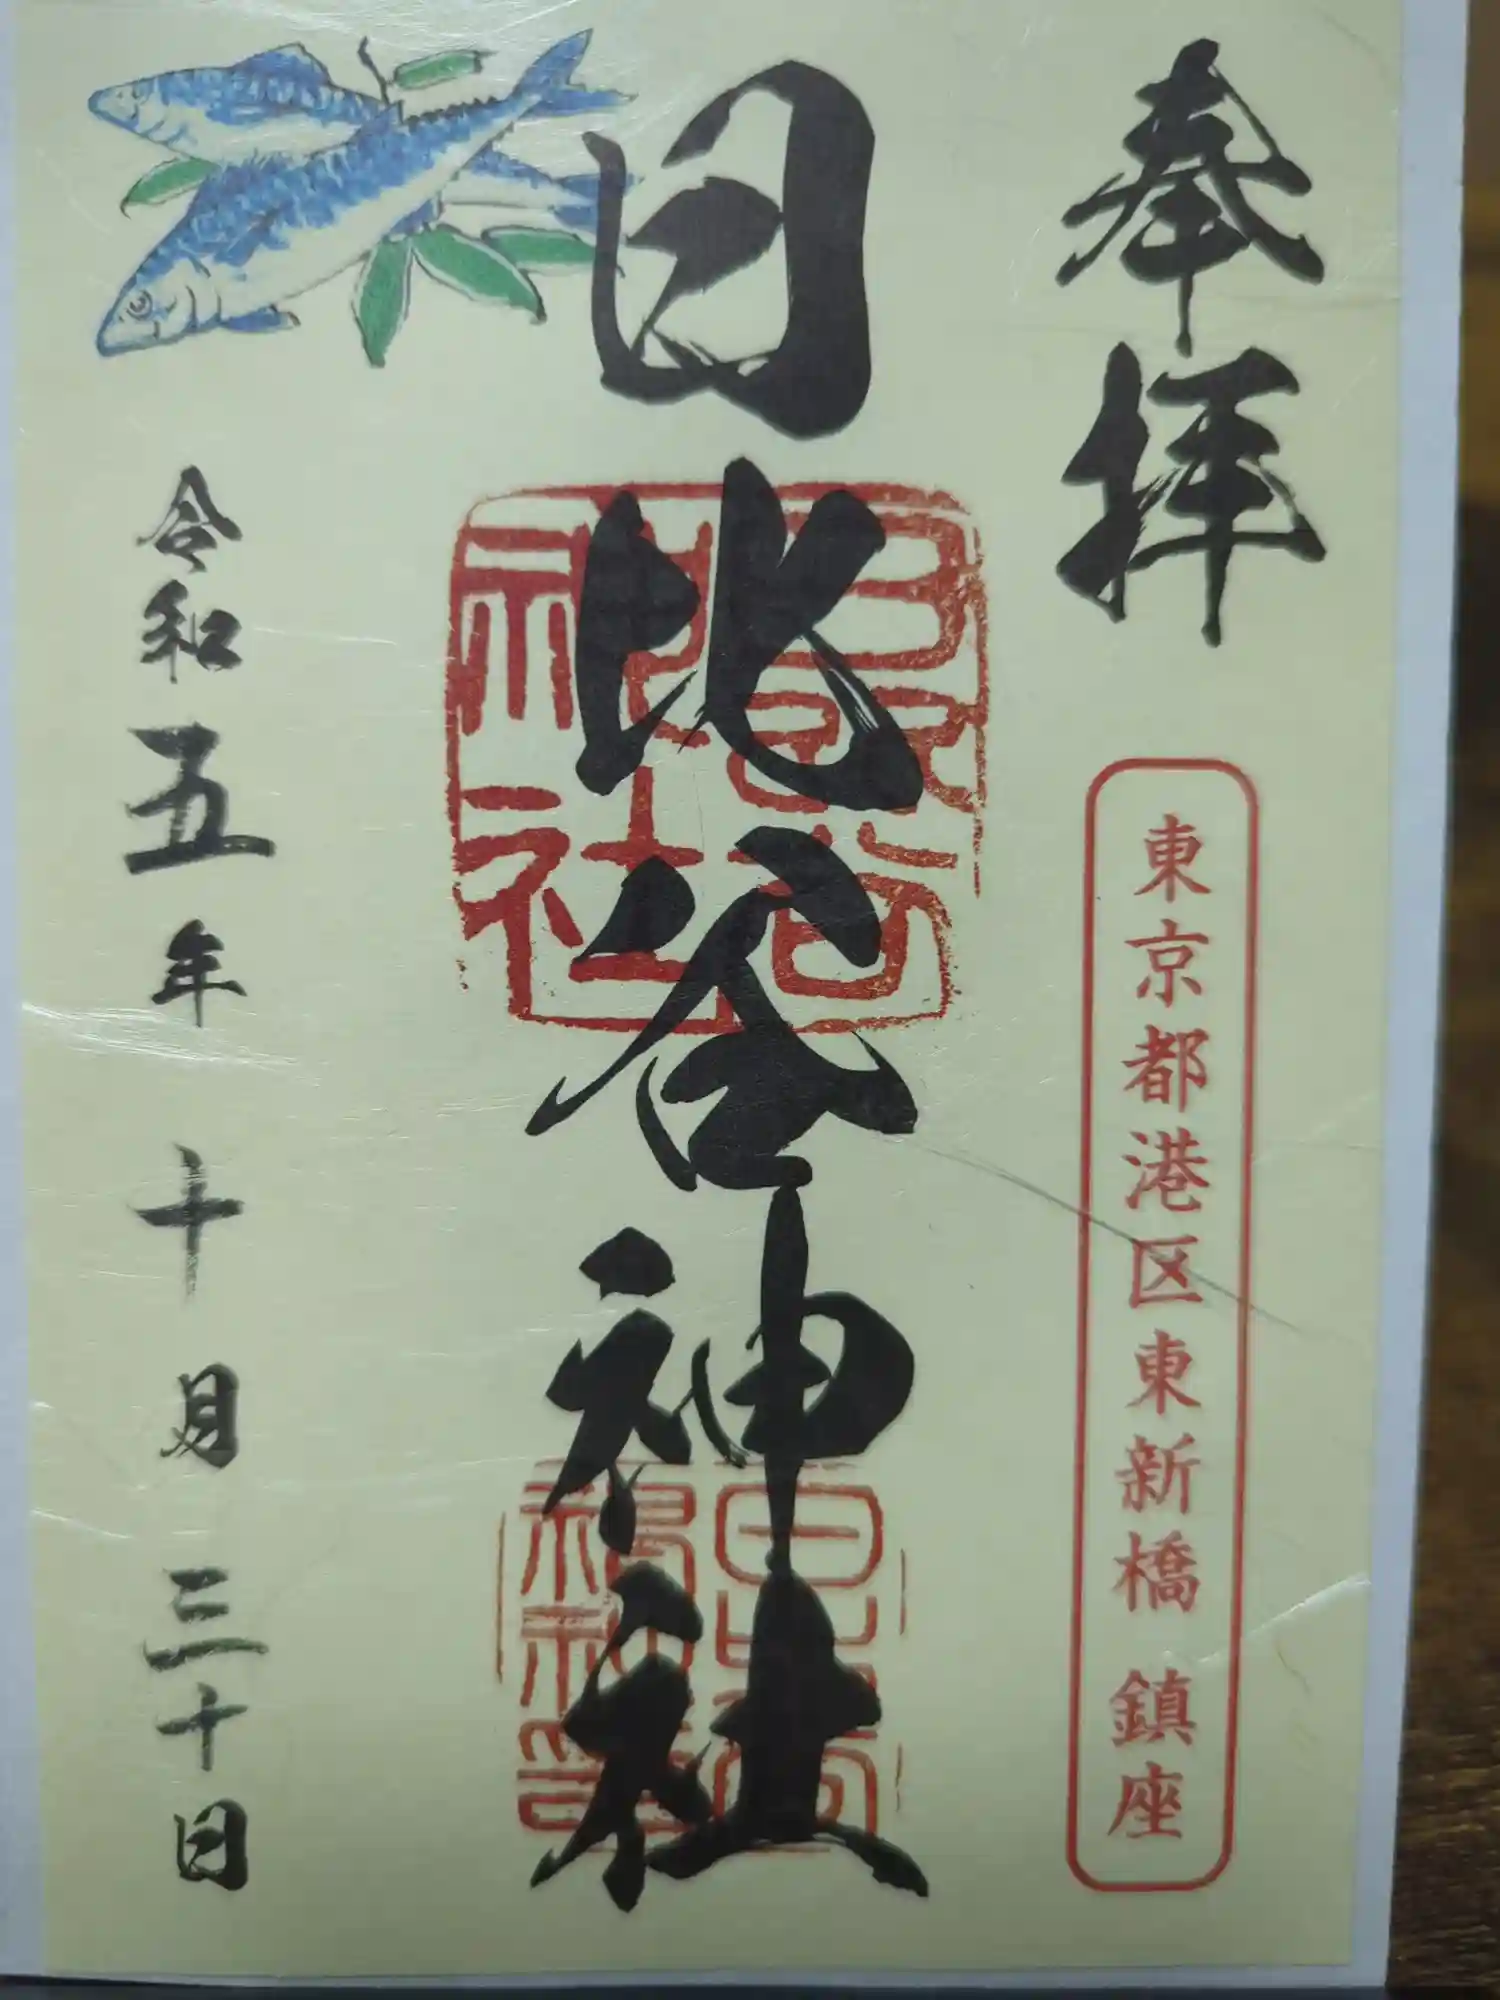 奉拝
東京都港区東新橋 鎮座
日比谷神社
令和五年十月三十日